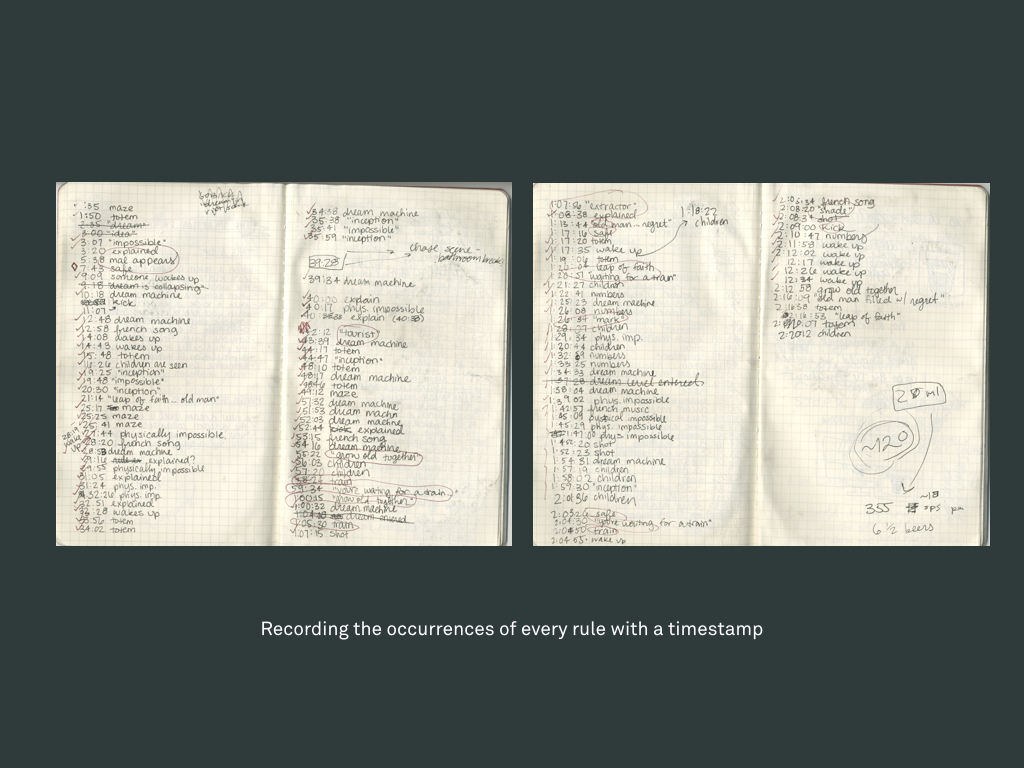 :35 maze
1:50 totem
2:35 "dream"
3:00 "idea"
3:07 "impossible"
3:20 explained
5:38 mal appears
7:43 safe
8:09 someone wakes up
9:18 dream is collapsing
10:18 dream machine
kick
11:07
12:48 dream machine
12:58 french song
14:08 wakes up
14:43 wakes up
15:48 totem
16:26 children are seen
19:25 "inception"
19:48 "impossible"
20:30 "inception"
21:14 "leap of faith... old man"
25:17 maze
25:25 maze
25:41 maze
27:44 physically impossible
28:20 french song
28:53 dream machine
29:16 explained?
29:55 physically impossible
30:05 explained
31:24 phys. imp.
32:26 phys. imp.
32:51 explained
33:28 wakes up
33:56 totem
34:02 totem
34:38 dream machine
35:38 "inception"
35:41 "impossible"
35:59 "inception"
chase scene -
39:23
39:34 dream machine
40:00 explain
40:17 phys. impossible
explain (40:38)
42:12 "tourist"
43:89 dream machine
44:17 totem
44:47 "inception"
48:10 totem
48:17 dream machine
totem
49:12 maze
51:32 dream machine
51:53 dream machn
52:03 dream machine
52:44 explained
53:15 french song
54:16 dream machine
55:22 "grow old together"
56:03 children
57:20 children
58:24 train
59:34 "you're waiting for a train"
1:00:15 "grow old together"
1:00:32 dream machine
dream entered
1:05:30 train
1:07:15 shot
1:07:56 "extractor"
1:08:38 explained
1:13:44 old man... regret"
1:17:16 safe
1:17:20 totem
1:17:35 wake up
1:19:06 totem
leap of faith
waiting for a train"
1:18:22
children
1:21:27 children
1:22:41 numbers
1:25:23 dream machine
1:26:08 numbers
1:26:37 "mark"
1:28:37 children
1:29:34 phys. imp.
1:30:44 children
1:32:39 numbers
1:33:25 numbers
1:34:33 dream machine
1:37:28 dream level entered
1:38:04 dream machine
1:39:02 phys. impossible
1:42:57 french music
1:45:09 pysical impossible
1:45:29 phys. impossible
1:47:00 phys impossible
1:52:20 shot
1:52:23 shot
1:54:31 dream machine
1:57:19 children
1:58:02 children
1:59:30 "inception"
2:01:36 children
2:03:26 safe
2:04:30 "you're waiting for a train"
2:04:50 train
2:04:53 wake up
2:06:34 french song
2:08:20 "shade"
2:08:34 shot
2:09:00 kick
2:10:47 numbers
2:11:58 wake up
2:12:02 wake up
12:17 wake up
12:26 wake up
12:34 wake up
2:12:58 grow old together
2:16:09 "old man filled w/ regret"
2:16:38 totem
2:16:53 "leap of faith"
totem
2:20:12 children
20 ml
~120
355
6 1/2 beers
Recording the occurrences of every rule with a timestamp